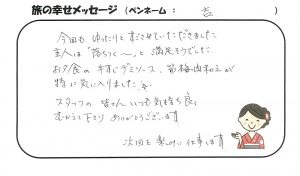 旅の幸せメッセージ（ペンネーム：吉）
今回もゆったりとすごさせていただきました
主人は「落ちつく〜」と満足そうでした
お夕食の牛すじデミソース、筍梅肉和えが
特に気に入りました
スタッフの皆さんいつも気持ち良く
むかえて下さりありがとうございます
次回を楽みに仕事します